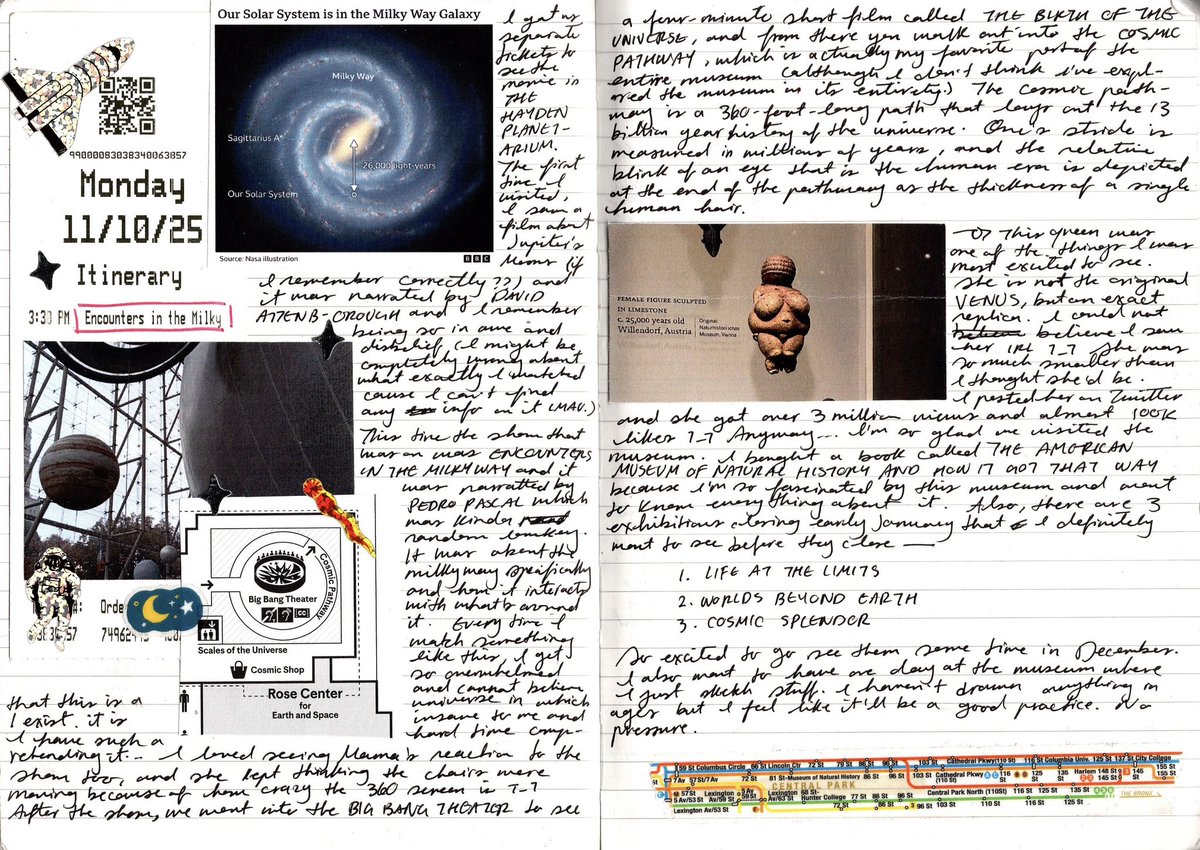 99000083038340063857
Monday
11/10/25
Itinerary
3:30 PM Encounters in the Milky
Our Solar System is in the Milky Way Galaxy
Milky Way
Sagittarius A*
26,000 light-years
Our Solar System
Source: Nasa illustration
BBC
I got us
separate
tickets to
see the
movie in
THE
HAYDEN
PLANET-
ARIUM.
The first
time I
visited,
I saw a
film about
Jupiter's
Moons (if
I remember correctly??) and
it was narrated by DAVID
ATTENB-OROUGH and I remember
being so in awe and
disbelief. (I might be
completely wrong about
what exactly I watched
cause I can't find
any info on it LMAO.)
This time the show that
was on was ENCOUNTERS
IN THE MILKY WAY and it
was narrated by
PEDRO PASCAL which
was kinda random lowkey.
It was about the
milky way specifically
and how it interacts
with what's around
it. Every time I
watch something
like this, I get
so overwhelmed
and cannot believe
that this is a universe in which
I exist. it is insane to me and
I have such a hard time comp-
rehending it. I loved seeing Mama's reaction to the
show too, and she kept thinking the chairs were
moving because of how crazy the 360 screen is T-T
After the show, we went into the BIG BANG THEATER to see
Orde
Big Bang Theater
Cosmic Pathway
Scales of the Universe
Cosmic Shop
Rose Center
for
Earth and Space
a four-minute short film called THE BIRTH OF THE
UNIVERSE, and from there you walk out into the COSMIC
PATHWAY, which is actually my favorite part of the
entire museum (although I don't think i've expl-
ored the museum in its entirety.) The cosmic path-
way is a 360-foot-long path that lays out the 13
billion year history of the universe. One's stride is
measured in millions of years, and the relative
blink of an eye that is the human era is depicted
at the end of the pathway as the thickness of a single
human hair.
FEMALE FIGURE SCULPTED
IN LIMESTONE
c. 25,000 years old
Willendorf, Austria
Original:
Naturhistorisches
Museum, Vienna
This queen was
one of the things I was
most excited to see.
she is not the original
VENUS, but an exact
replica. I could not
believe I saw
her IRL T_T she was
so much smaller then
I thought she'd be.
I posted her on Twitter
and she got over 3 million views and almost 100K
likes T_T Anyway... I'm so glad we visited the
museum. I bought a book called THE AMERICAN
MUSEUM OF NATURAL HISTORY AND HOW IT GOT THAT WAY
because I'm so fascinated by this museum and want
to know everything about it. Also, there are 3
exhibitions closing early January that I definitely
want to see before they close —
1. LIFE AT THE LIMITS
2. WORLDS BEYOND EARTH
3. COSMIC SPLENDOR
So excited to go see them some time in December.
I also want to have one day at the museum where
I just sketch stuff. I haven't drawn anything in
ages but I feel like it'll be a good practice. No
pressure.
59 St Columbus Circle 66 St Lincoln Ctr 72 St 79 St 86 St 96 St 103 St Cathedral Pkwy(110 St) 116 St Columbia Univ. 125 St 137 St City College
7 Av 57 St/7 Av 72 St 81 St-Museum of Natural History 86 St 96 St 103 St Cathedral Pkwy(110 St) 116 St 125 St 135 St Harlem 148 St 145 St 155 St
CENTRAL PARK
57 St Lexington Av/63 St Lexington Av/59 St 68 St-Hunter College 77 St 86 St 96 St Central Park North (110St) 116 St 125 St 135 St 145 St
5 Av/53 St
Lexington Av/53 St 72 St 86 St 96 St 103 St 110 St 116 St 125 St
THE BRONX